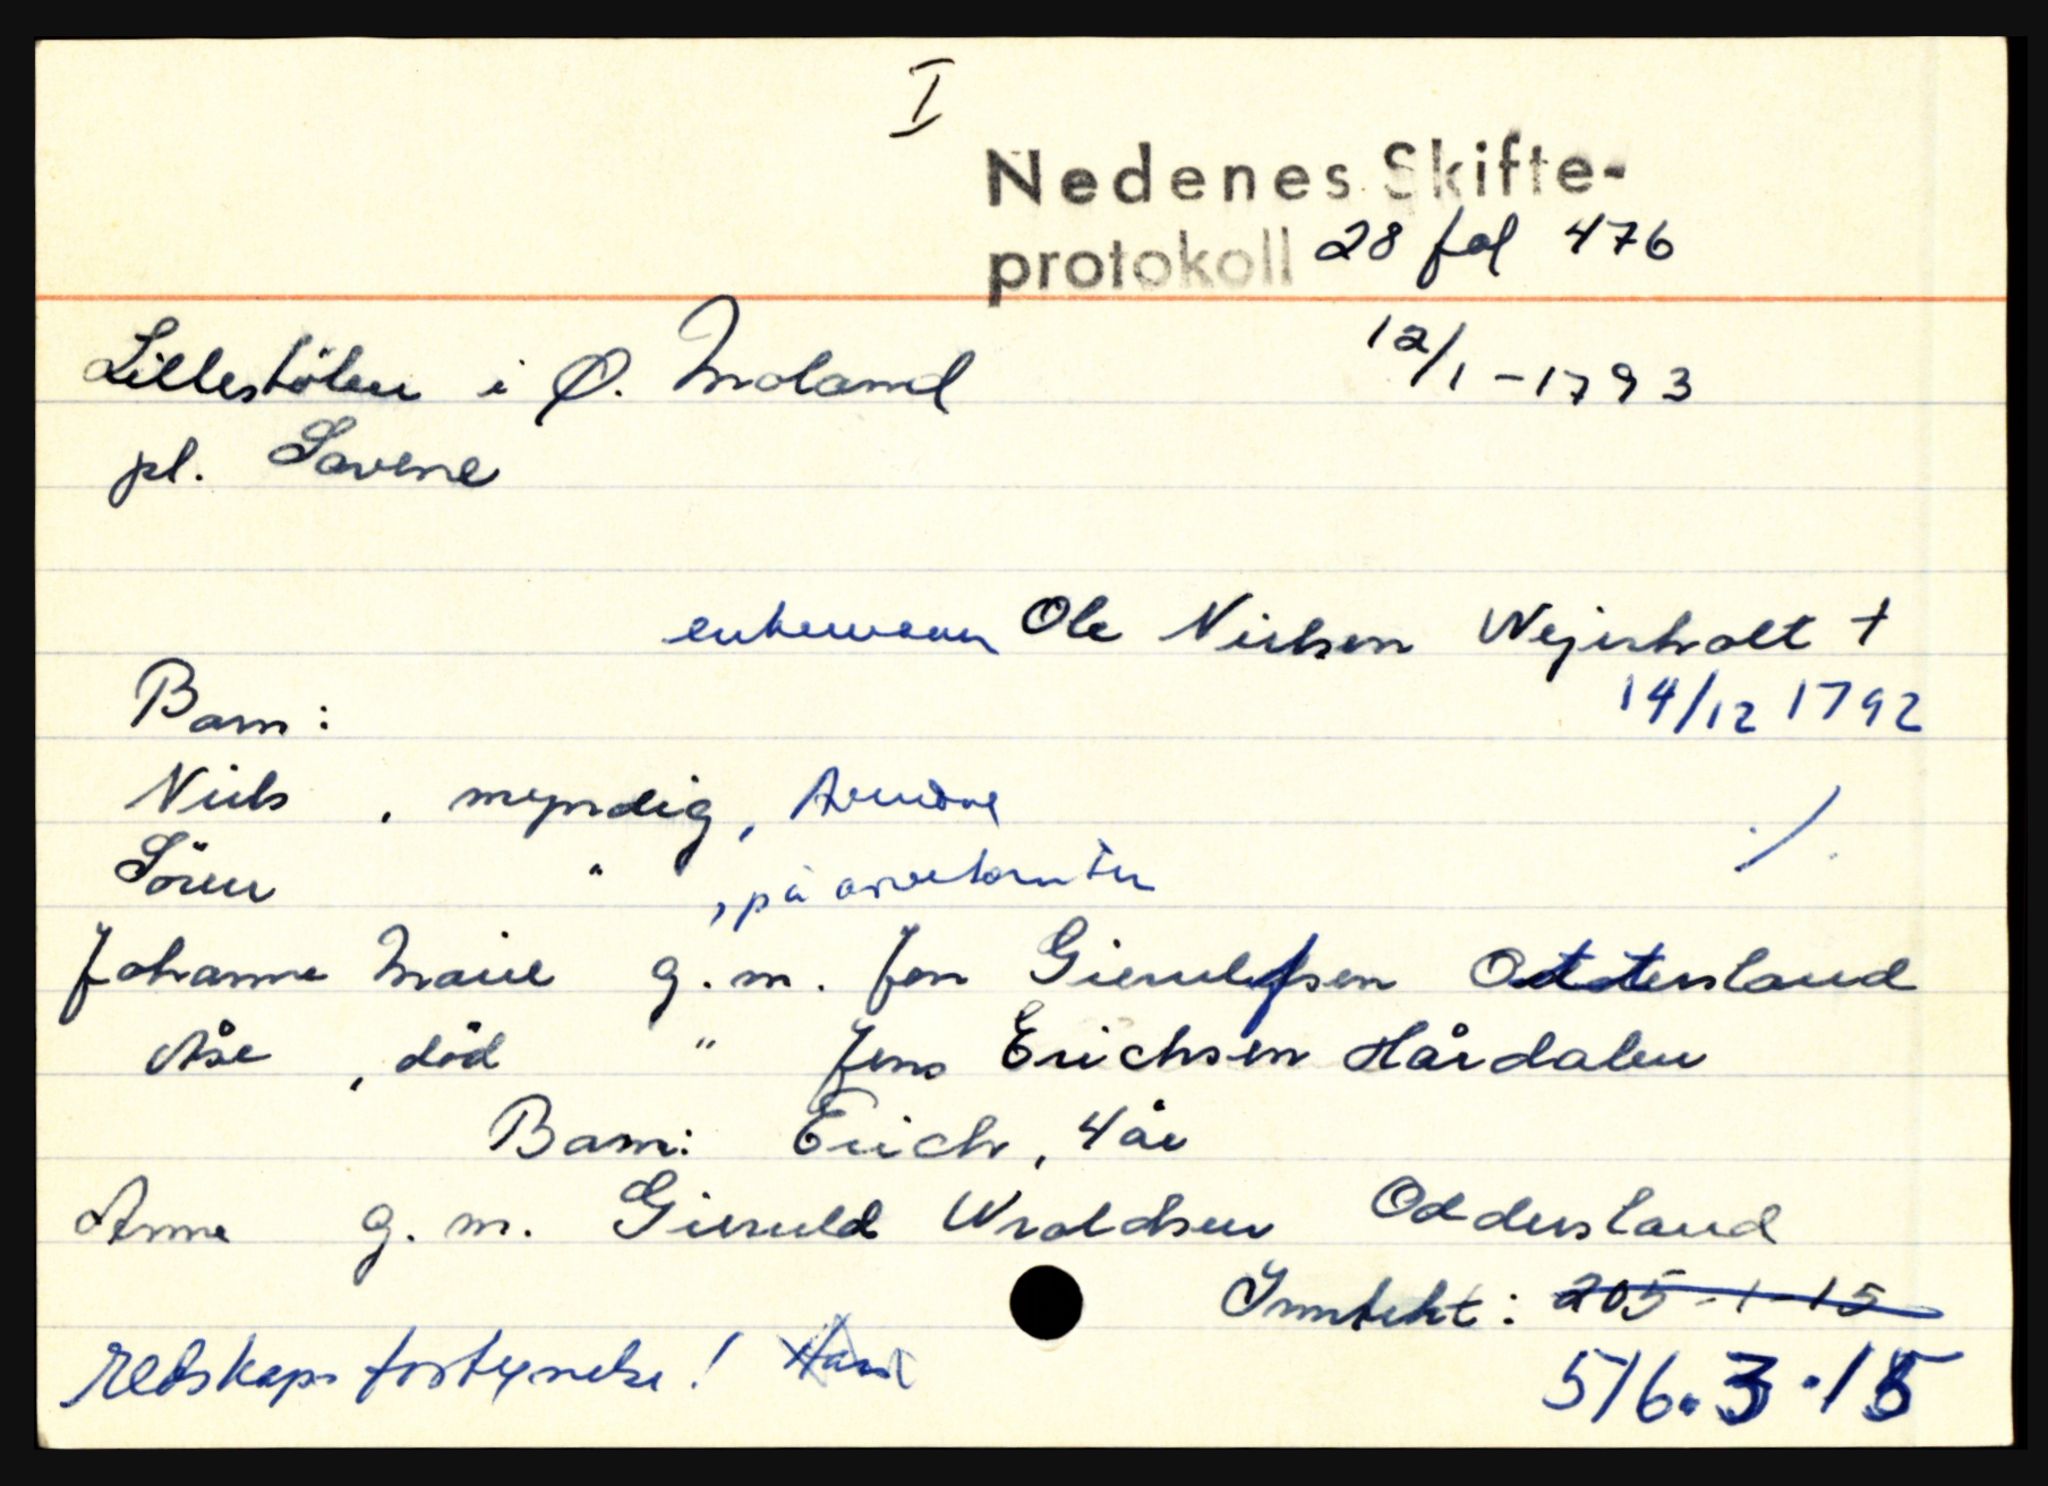 I
Nedenes Skifte-
protokoll 28 fol 476
Lillestölen i Ø. Moland 12/1-1793
pl. Savene
enkemann Ole Nielsen Wejsholt +
Barn: 14/12 1792
Niels , myndig, Arendal ./.
Sören " , på
Johanne Marie g.m. Jen Gierulfsen Ottersland
Åse , död " Jens Erichsen Hårdalen
Barn: Erich, 4 år
Anne g. m. Gieruld Wroldsen Oddersland
Inntekt: 205-1-15
redskaps fortegnelse! Han 516.3.15